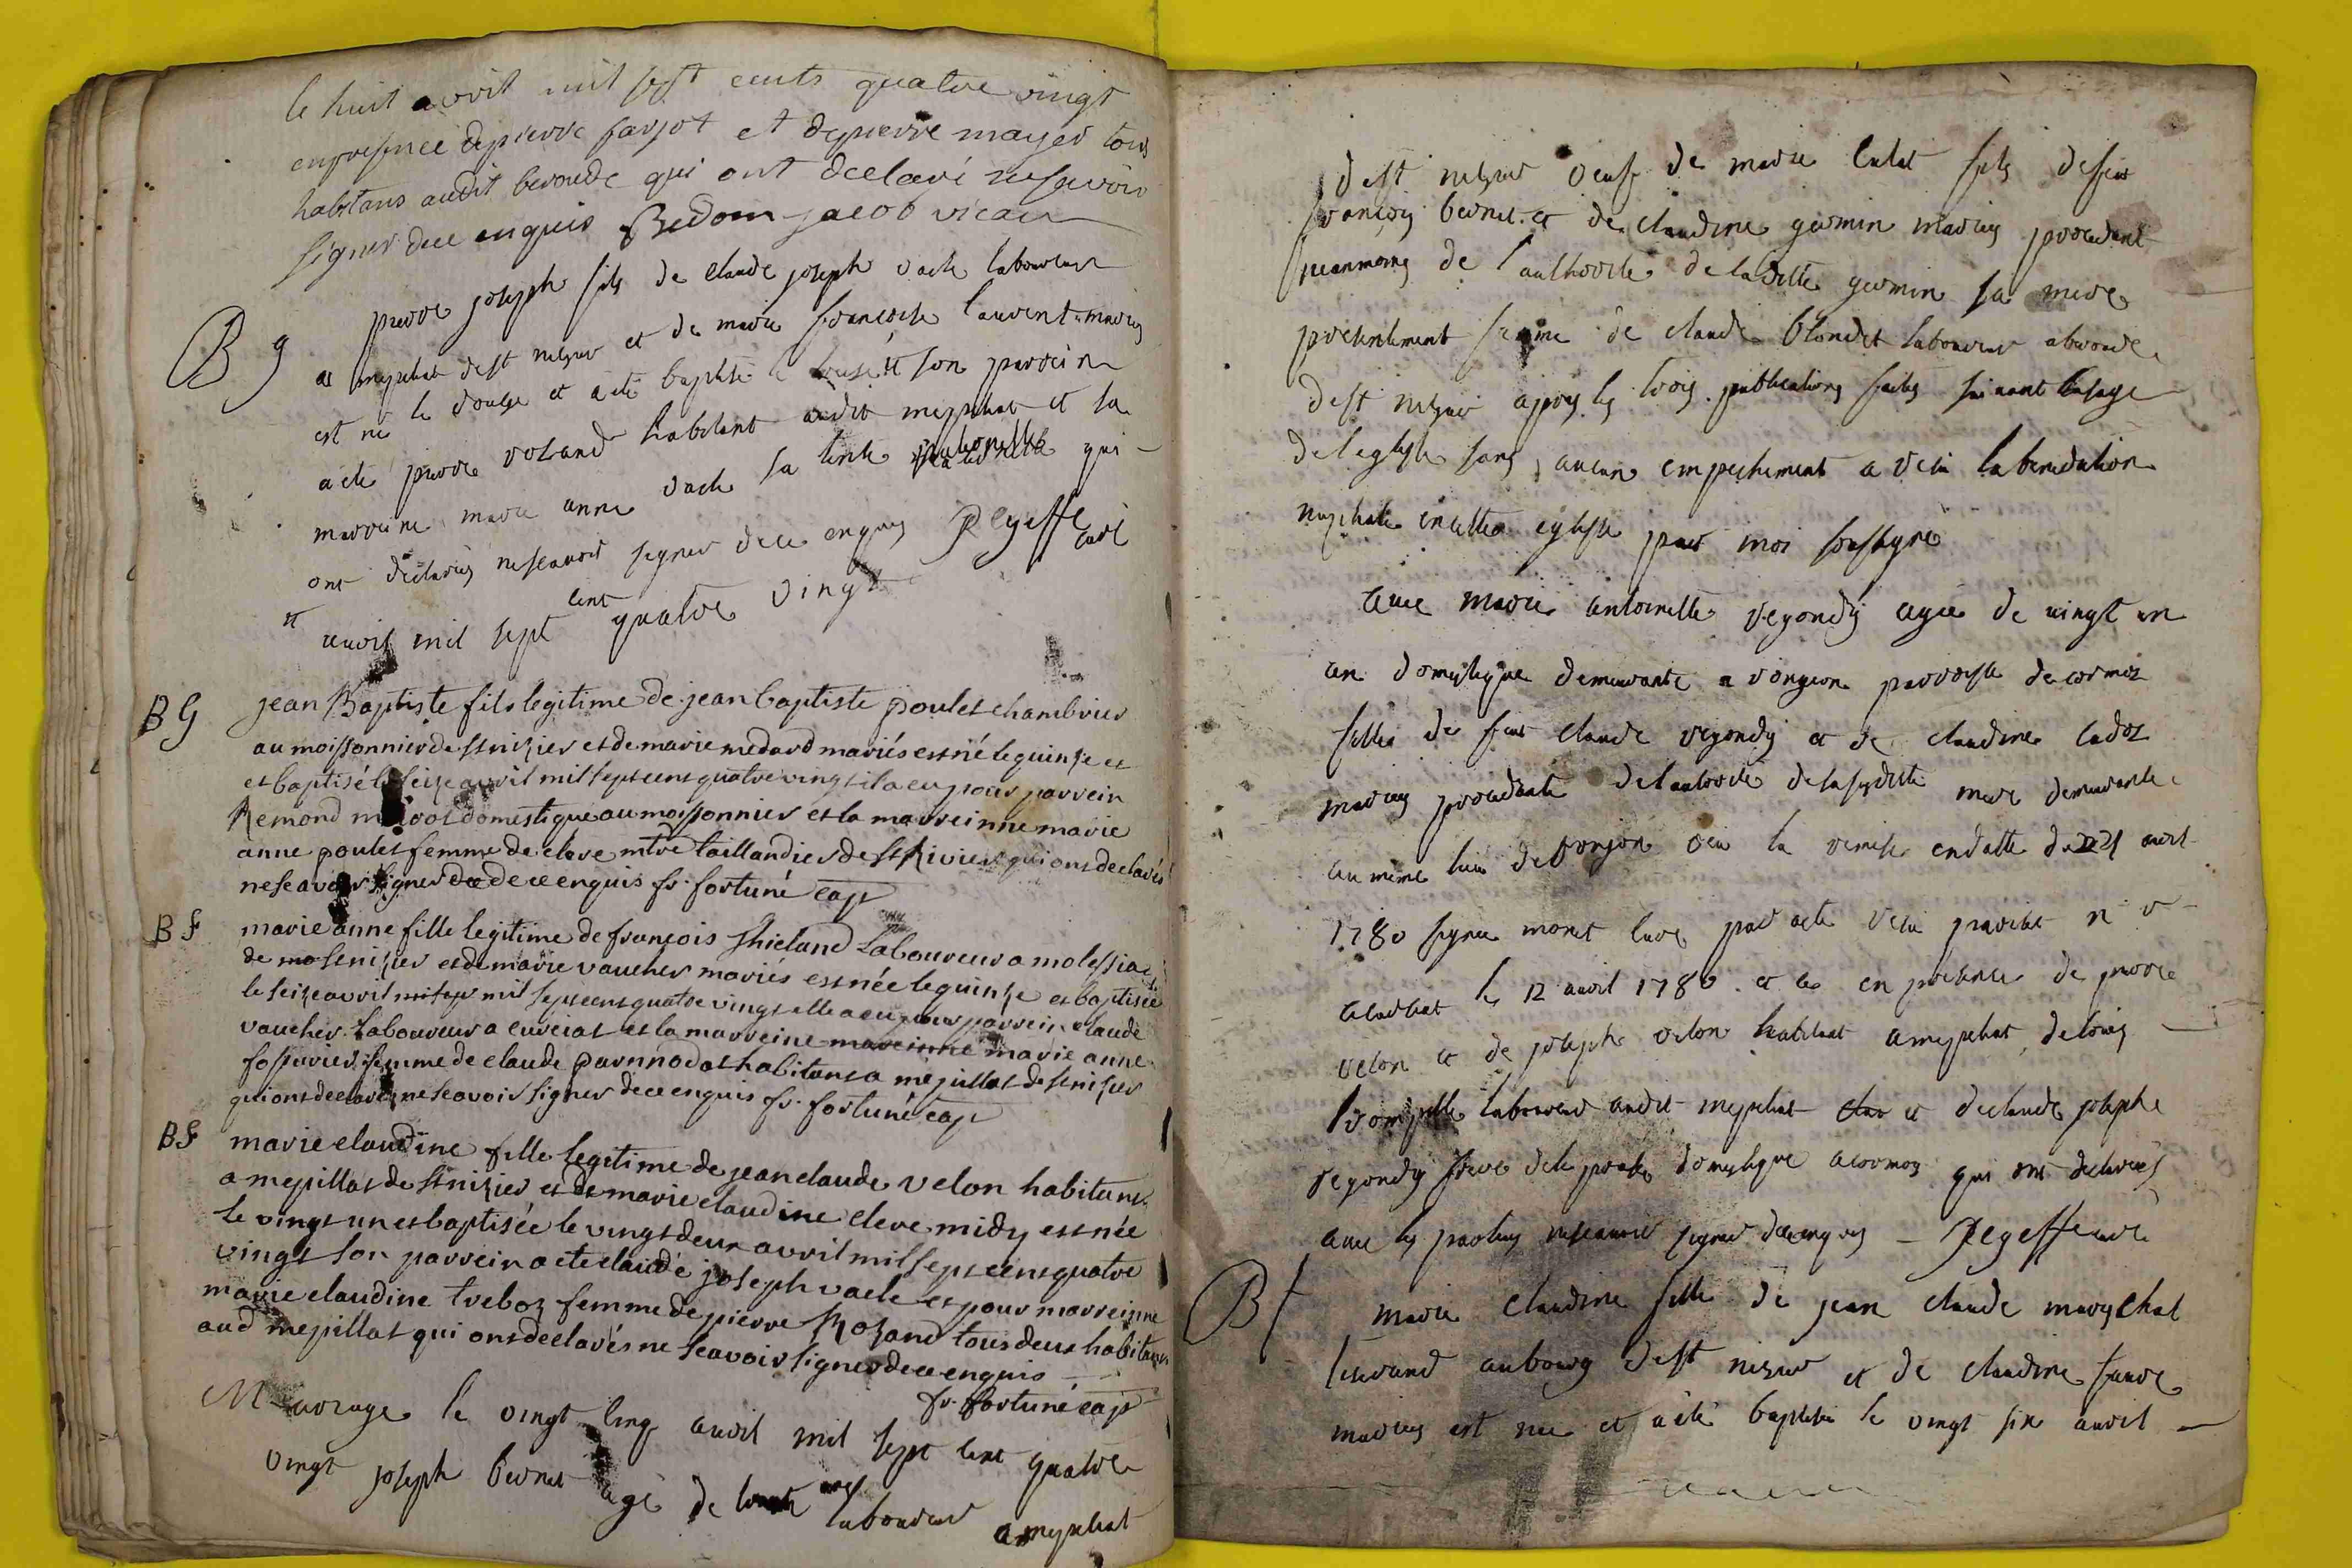 le huit avril mil sept cents quatre vingt
en presence de pierre farjot et de pierre mayer tous
habitans audit beroude qui ont declaré ne scavoir
signer de ce enquis Bedom jacob vicair
B g
pierre joseph fils de claude joseph vach laboureur
a mepilat de st nizier et de marie francoise laurent mariés
est né le douze et a été baptisé le et son parrein
a été pierre rozand habitant audit mepilat et sa
marreine marie anne vach sa tente qui
ont déclarés ne scavoir signer de ce enquis curé
avril mil sept cent quatre vingt
BG
jean Baptiste fils legitime de jean baptiste poulet chambrier
au moissonnier de st nizier et de marie medard mariés est né le quinze et
et baptisé le seize avril mil sept cens quatre vingt il a eu pour parrein
Remond domestique au moissonnier et la marreinne marie
anne poulet femme de clere mtre taillandier de st Rivier qui ons declarés
ne scavoir signer de ce enquis fr. fortuné cap
BF
marie anne fille legitime de francois laboureur a
de st nizier et de marie vaucher mariés est née le quinze et baptisée
le seize avril mil sept cens quatre vingt elle a eu pour parrein claude
vaucher laboureur a et la marreine marie anne
femme de claude habitans a mépillat de st nizier
qui ons declaré ne scavoir signer de ce enquis fr. fortuné cap
BF
marie claudine fille legitime de jean claude velon habitant
a mepillat de st nizier et de marie claudine clere midy est née
le vingt un et baptisée le vingt deux avril mil sept cens quatre
vingt son parrein a été claude joseph vach et pour marreinne
marie claudine treboz femme de pierre Rozand tous deux habitans
aud mepillat qui ons declarés ne scavoir signer de ce enquis
fr. fortuné cap
Mariage le vingt cinq avril mil sept cent quatre
vingt joseph bernet agé de ans laboureur a mepilat
de st nizier veuf de marie fils de feu
françois bernet et de claudine germin mariés procedant
neanmoins de l'authorité de laditte germin sa mere
presentement femme de claude blondet laboureur a beroude
de st nizier apres les trois publications faites suivant l'usage
de l'eglise sans aucun empechement a recu la benediction
nuptiale en cette eglise par moi soussigné
avec marie antoinette regondy agée de vingt un
an domestique demeurante a vongeon parroisse de cormoz
fille de feu claude regondy et de claudine cadoz
mariés procedante de l'autorité de la susditte mere demeurante
au même lieu de vonjon veu la remise en datte du 21 avril
1780 signée moret curé par acte
le 12 avril 1780 et en presence de pierre
velon et de joseph velon habitant a mepilat de louis
laboureur audit mepilat et de claude joseph
regondy frere de domestique a cormoz qui ont declarés
avec les parties ne scavoir signer de ce enquis curé
B f
marie claudine fille de jean claude marechal
tisserand au bourg de st nizier et de claudine favre
mariés est née et a été baptisée le vingt six avril